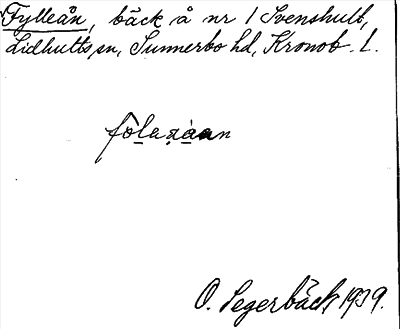 Fylleån, bäck å nr 1 Svenshult,
Lidhults sn, Sunnerbo hd, Kronob. l.
O. Segerbäck 1939.